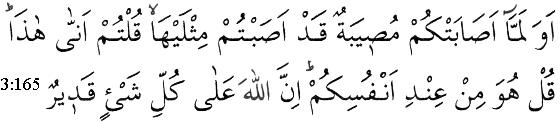 اَوَ لَمَّاۤ اَصَابَتْكُمْ مُّصِيْبَةٌ قَدْ اَصَبْتُمْ مِّثْلَيْهَا ۙ قُلْتُمْ اَنّٰى هٰذَا ؕ
قُلْ هُوَ مِنْ عِنْدِ اَنْفُسِكُمْ ؕ اِنَّ اللّٰهَ عَلٰى كُلِّ شَیْءٍ قَدِيْرٌ 3:165